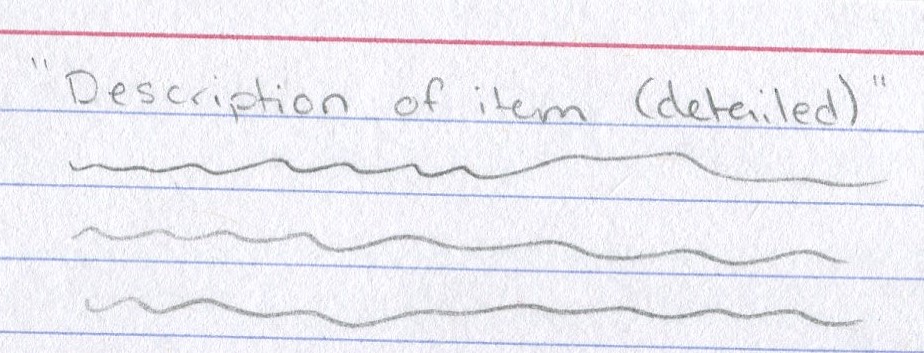 "Description of item (detailed)"